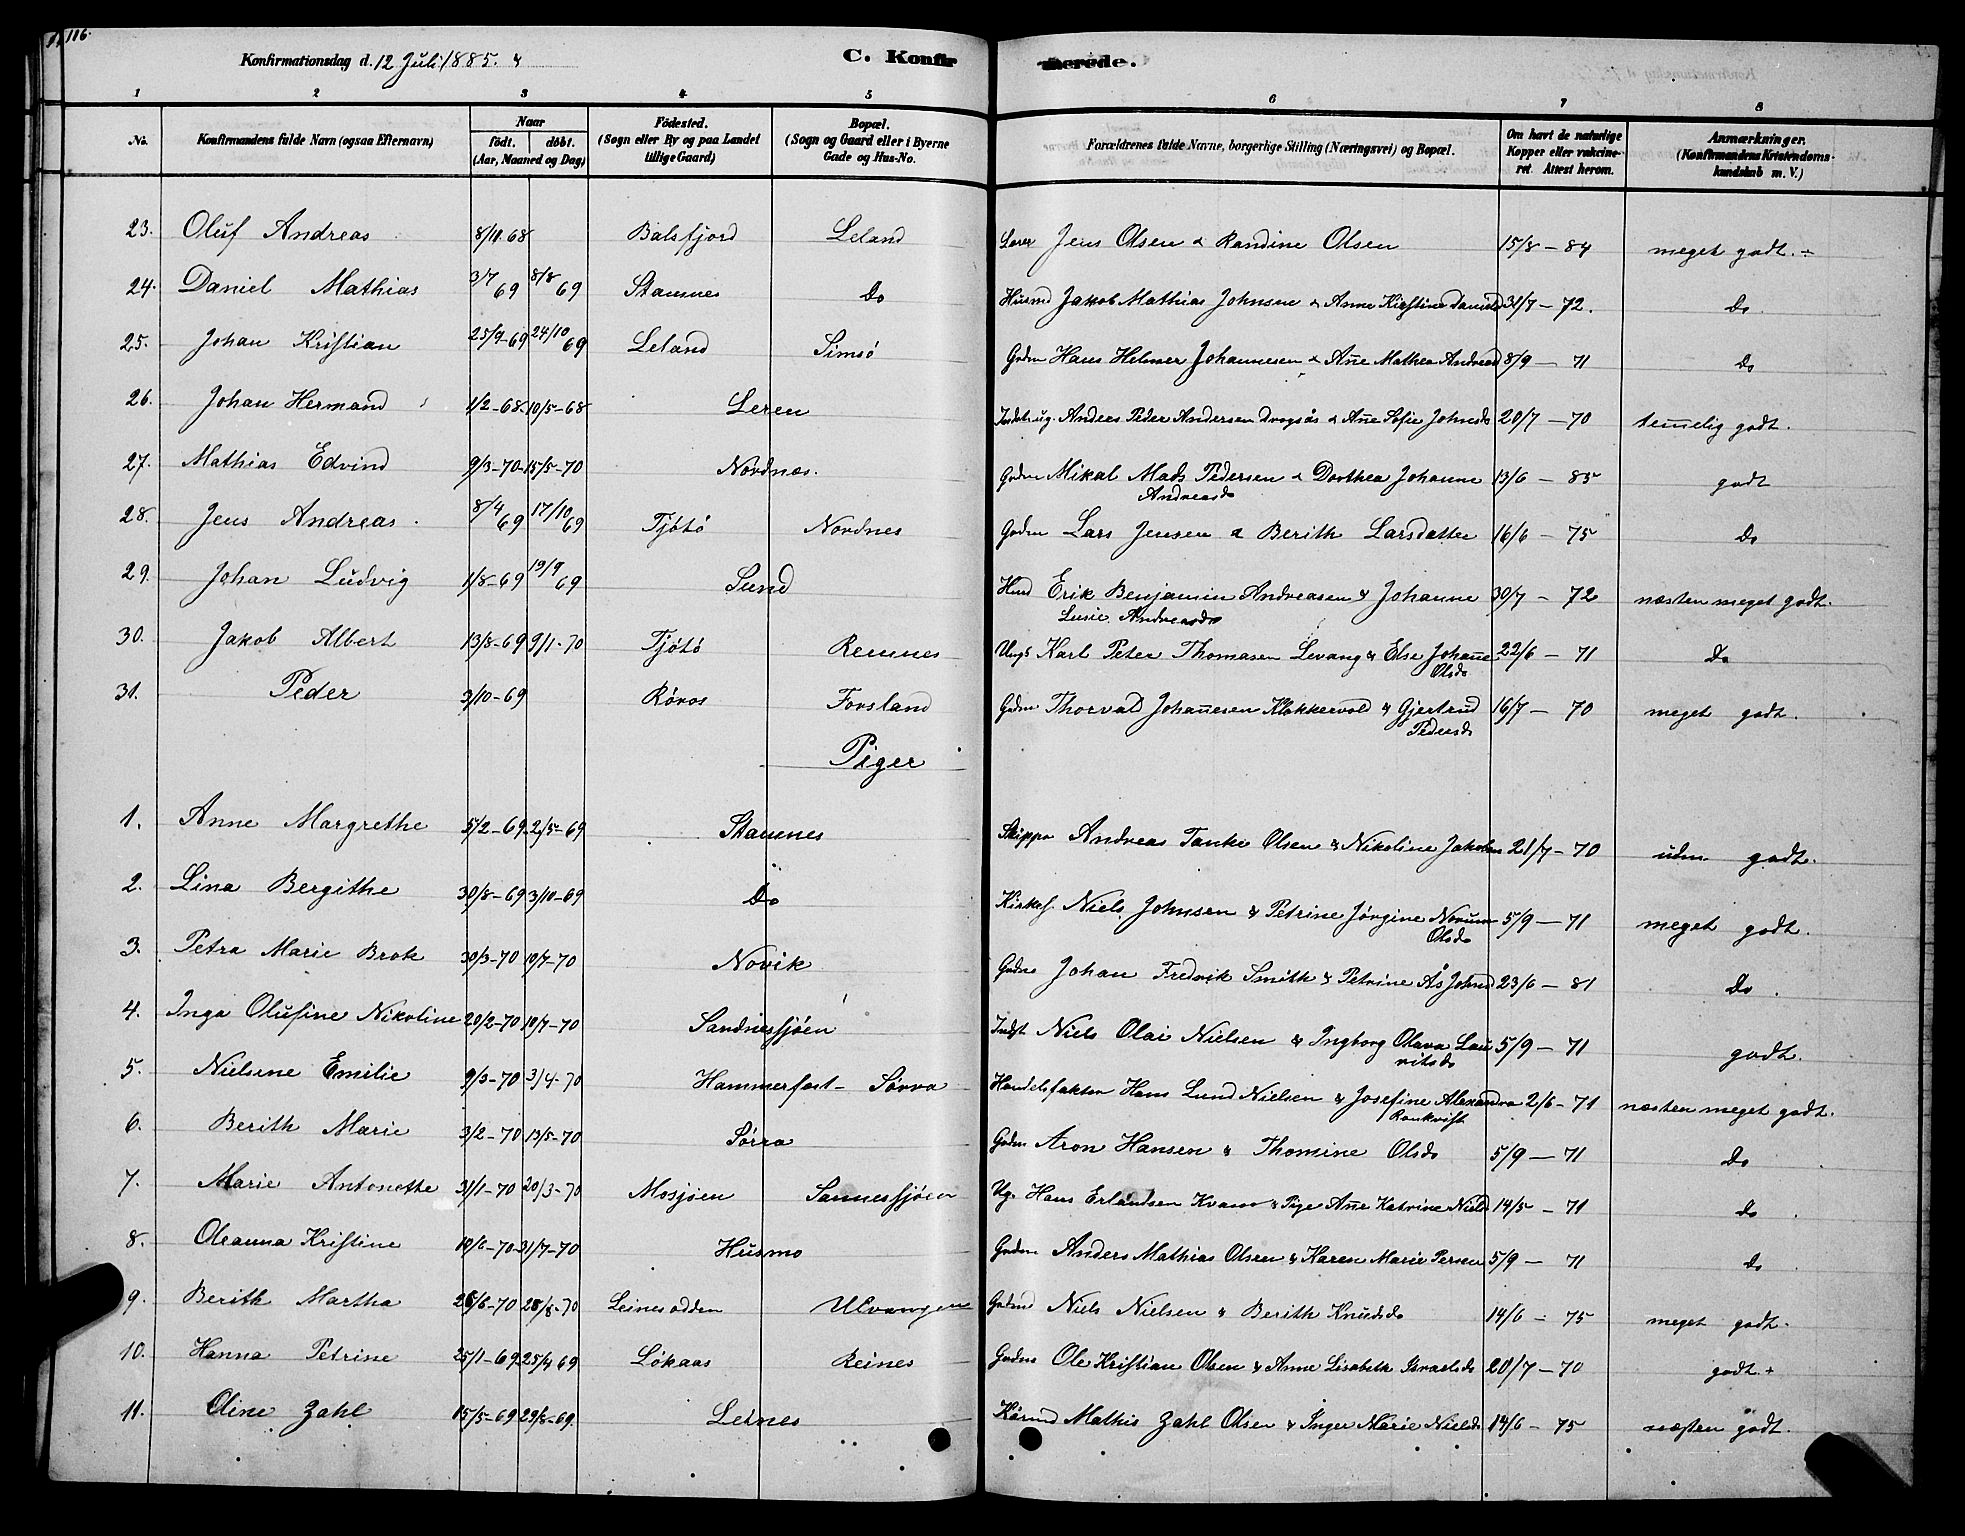 116.
Konfirmationsdag d. 12 Juli 1885.
C. Konfirmerede.
1 2 3 4 5 6 7 8
No. Konfirmandens fulde Navn (ogsaa Efternavn) Naar födt. döbt. (Aar, Maaned og Dag) Födested. (Sogn eller By og paa Landet tillige Gaard) Bopæl. (Sogn og Gaard eller i Byerne Gade og Hus-No. Forældrenes fulde Navne, borgerlige Stilling (Næringsvei) og Bopæl. Om havt de naturlige Kopper eller vakcineret. Attest herom. Anmærkninger. (Konfirmandens Kristendomskundskab m. V.)
23. Oluf Andreas 8/11 68 Balsfjord Leland Jens Olsen & Randine Olsen 15/8 - 84 meget godt.
24. Daniel Mathias 3/7 69 8/8 69 Stamnes Do Husmd Jakob Mathias Johnsen & Anne Kirstine Danielsd 31/7 - 72. Do
25. Johan Kristian 25/9-69 24/10 69 Leland Simsö Gdm Hans Helmer Johannesen & Ane Mathea Andreasd 8/9 - 71 Do
26. Johan Hermand 1/2-68 10/5-68 Leren Indst ug. Anders Peder Andersen Drogsås & Ane Sofie Johnsd 20/7 - 70 temelig godt.
27. Mathias Edvind 9/3-70 15/5-70 Nordnæs. Gdm Mikal Mads Pedersen & Dorthea Johanne Andreasd 13/6 - 85 godt
28. Jens Andreas 8/4 69 17/10 69 Tjötö Nordnes Gdm Lars Jensen & Berith Larsdatter 16/6 - 75 Do
29. Johan Ludvig 1/8-69 19/9 69 Sund Hmd Erik Benjamin Andreasen & Johanne Lusie Andreasd 30/7 - 72 næsten meget godt.
30. Jakob Albert 13/8-69 9/1-70 Tjötö Remnes Ungk Karl Peter Thomasen Levang & Else Johane Olsd 22/6 - 71 Do
31. Peder 3/10-69 Röros Forsland Gdm Thorvald Johanesen Klokkervold & Gjertrud Pedersd 16/7 - 70 meget godt.
Piger
1. Anne Margrethe 5/2-69 2/5-69 Stamnes Skipper Andreas Tanke Olsen & Nikoline Jakobsen 21/7-70 udm godt.
2. Lina Bergithe 30/8-69 3/10-69 Do Kirkes. Niels Johnsen & Petrine Jörgine Norum Olsd 5/9 - 71 meget godt.
3. Petra Marie Brok 30/3-70 10/7-70 Novik Gdm Johan Fredrik Smith & Petrine Ås Johnsd 23/6 - 81 Do
4. Inga Olufine Nikoline 20/2-70 10/7-70 Sandnessjöen Indst Niels Olai Nielsen & Ingborg Olava Lauritsd 5/9 - 71 godt.
5. Nielsine Emilie 9/3-70 3/4-70 Hammerfest - Sövra Handelsfaktor Hans Lund Nielsen & Josefine Alexandra Rankvist 2/6-71 næsten meget godt.
6. Berith Marie 3/2-70 13/5-70 Sörra Gdm Aron Hansen & Thomine Olsd 5/9 - 71 Do
7. Marie Antonette 31/1-70 20/3-70 Mosjöen Sannessjöen Ug. Hans Erlandsen Kvaser & Pige Ane Katrine Nielsd 14/5 - 71 do
8. Oleanna Kristine 10/6-70 31/7-70 Husmo Gdm Anders Mathias Olsen & Karen Marie Persen 5/9 - 71 do
9. Berith Martha 26/6-70 28/8-70 Leinesodden Ulvangen Gdmd Niels Nielsen & Berith Knudsd 14/6 - 75 meget godt.
10. Hanna Petrine 25/1-69 25/4 69 Lökaas Reines Gdm Ole Kristian Olsen & Anne Lisabeth Israelsd 20/7 - 70 godt.+
11. Oline Zahl 15/5-69 29/8-69. Leines Mathis Zahl Olsen & Inger Marie Nielsd 14/6 - 75 næsten godt.